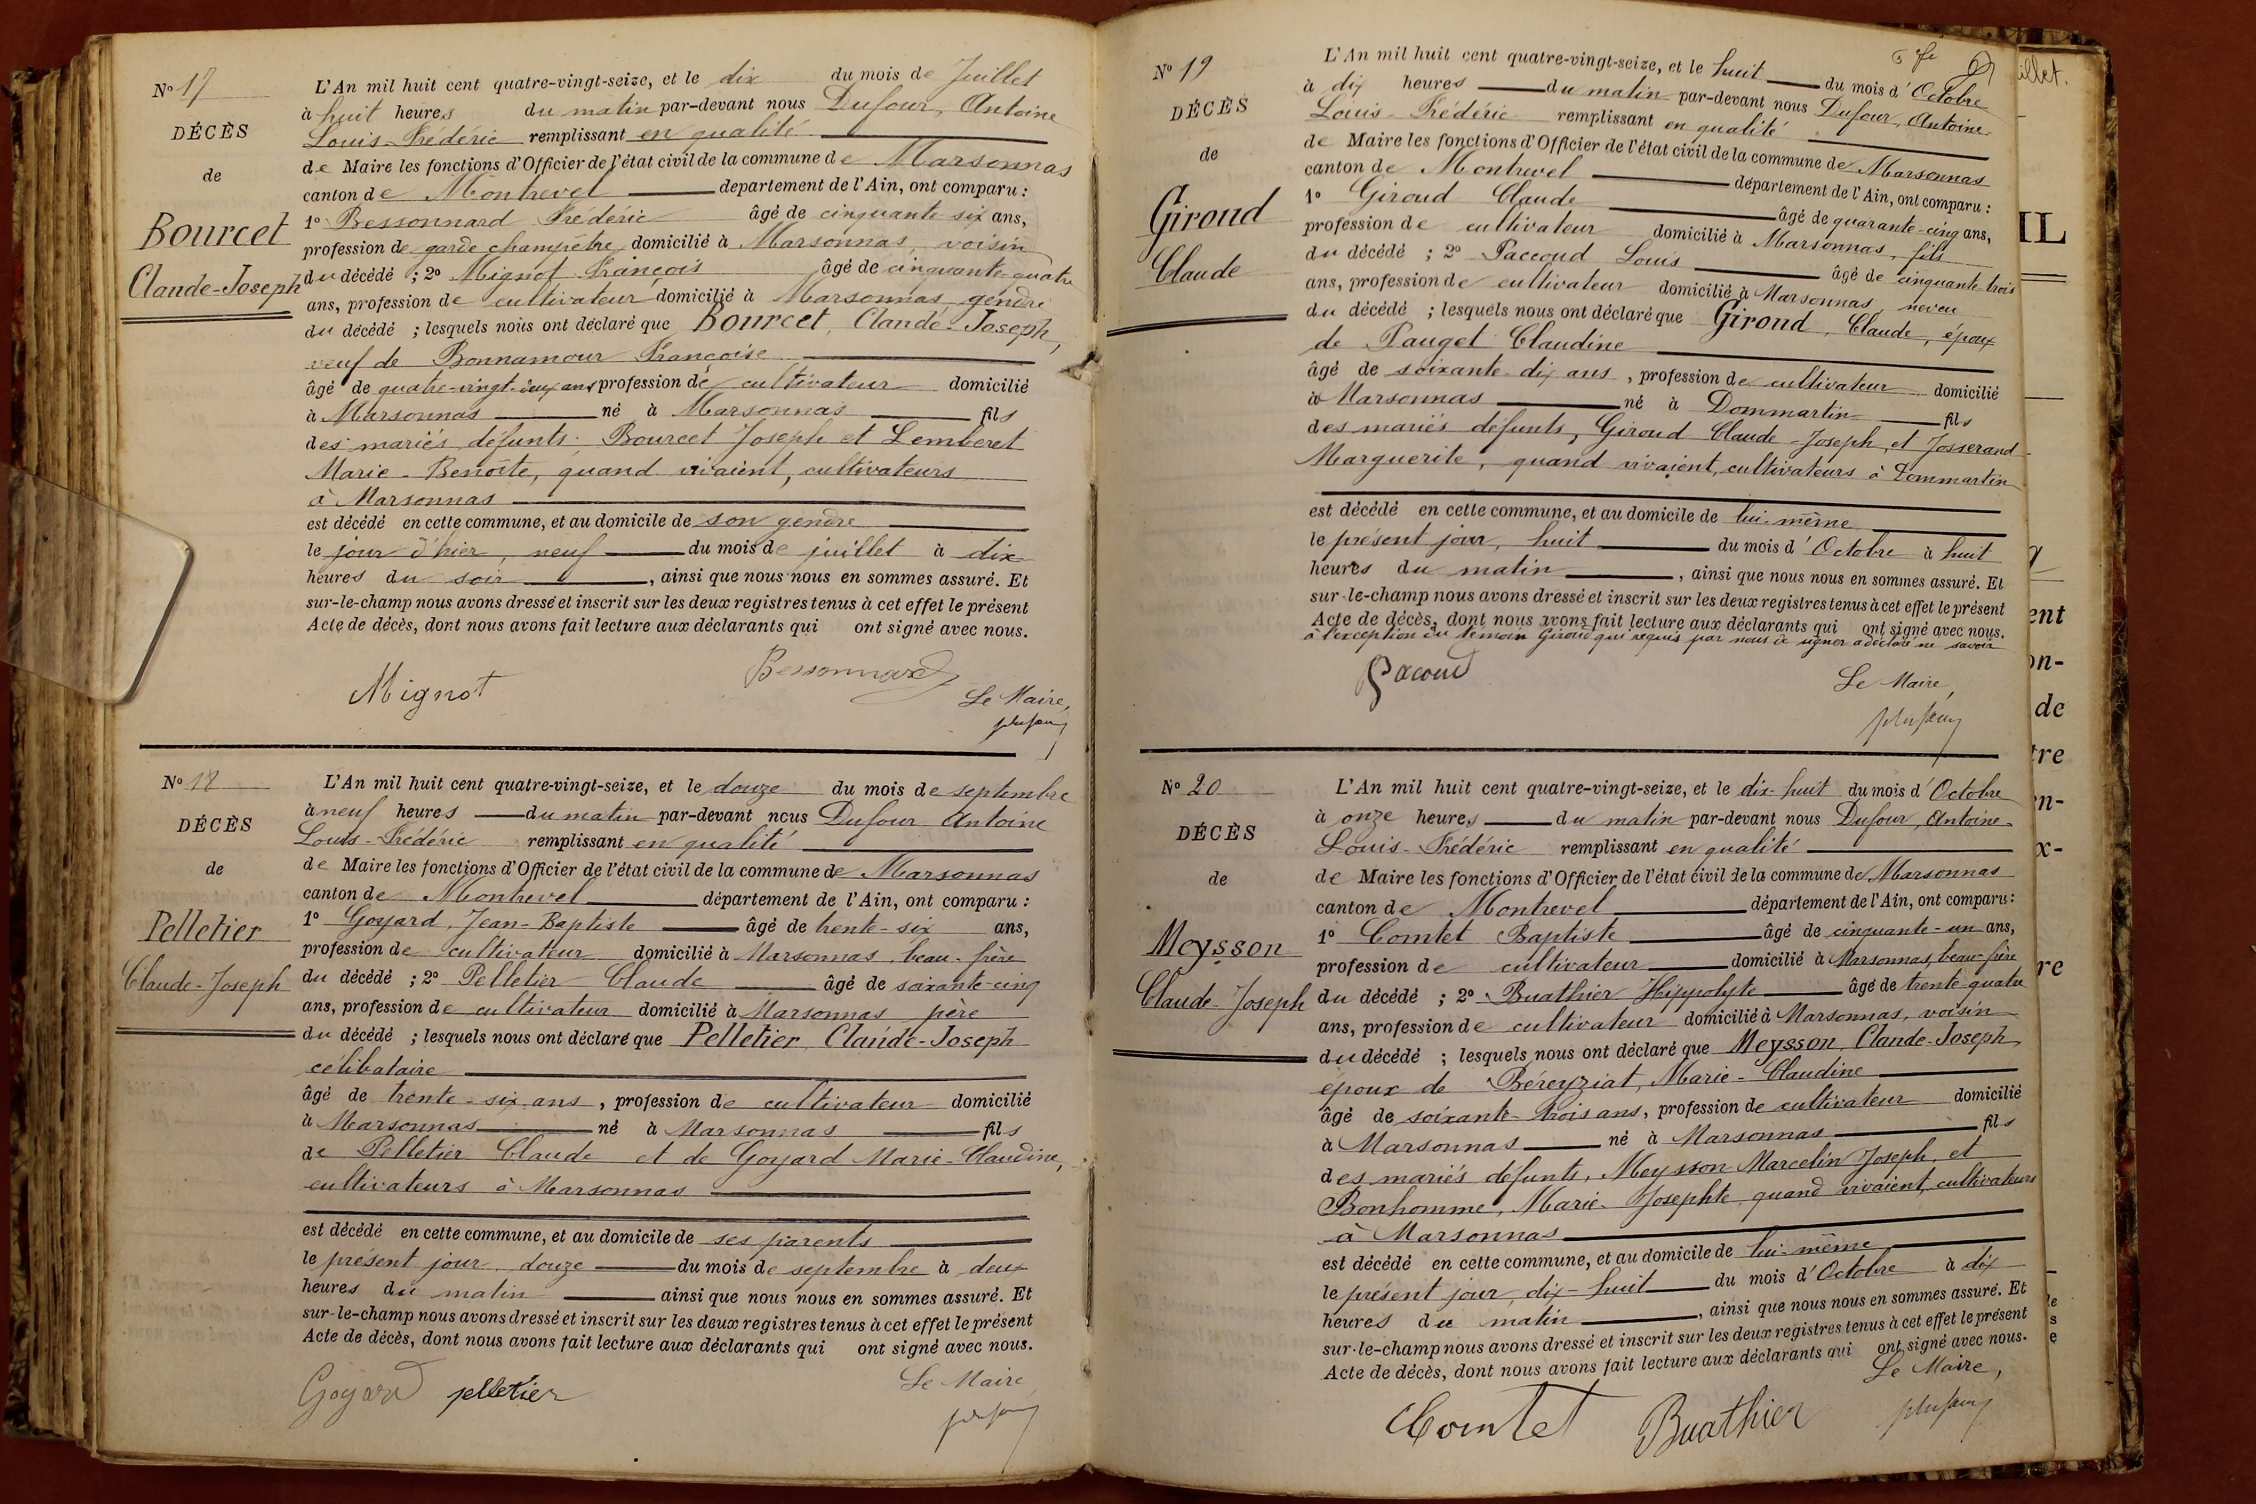 Nº 17
DÉCÈS
de
Bourcet
Claude-Joseph
L'An mil huit cent quatre-vingt-seize, et le dix du mois de Juillet
à huit heures du matin par-devant nous Dufour, Antoine
Louis-Frédéric remplissant en qualité
de Maire les fonctions d'Officier de l'état civil de la commune de Marsonnas
canton de Montrevel departement de l'Ain, ont comparu :
1º Bessonnard Frédéric âgé de cinquante-six ans,
profession de garde champêtre domicilié à Marsonnas, voisin
du décédé ; 2º Mignot François âgé de cinquante-quatre
ans, profession de cultivateur domicilié à Marsonnas, gendre
du décédé ; lesquels nous ont déclaré que Bourcet, Claude-Joseph,
veuf de Bonnamour Françoise
âgé de quatre-vingt-deux ans profession de cultivateur domicilié
à Marsonnas né à Marsonnas fils
des mariés défunts, Bourcet Joseph et Lemberet
Marie-Benoîte, quand vivaient, cultivateurs
à Marsonnas
est décédé en cette commune, et au domicile de son gendre
le jour d'hier, neuf du mois de juillet à dix
heures du soir, ainsi que nous nous en sommes assuré. Et
sur-le-champ nous avons dressé et inscrit sur les deux registres tenus à cet effet le présent
Acte de décès, dont nous avons fait lecture aux déclarants qui ont signé avec nous.
Mignot Bessonnard
Le Maire,
Nº 18
DÉCÈS
de
Pelletier
Claude-Joseph
L'An mil huit cent quatre-vingt-seize, et le douze du mois de septembre
à neuf heures du matin par-devant nous Dufour Antoine
Louis-Frédéric remplissant en qualité
de Maire les fonctions d'Officier de l'état civil de la commune de Marsonnas
canton de Montrevel département de l'Ain, ont comparu :
1º Goyard, Jean-Baptiste âgé de trente-six ans,
profession de cultivateur domicilié à Marsonnas, beau-frère
du décédé ; 2º Pelletier Claude âgé de soixante-cinq
ans, profession de cultivateur domicilié à Marsonnas père
du décédé ; lesquels nous ont déclaré que Pelletier, Claude-Joseph
célibataire
âgé de trente-six ans, profession de cultivateur domicilié
à Marsonnas né à Marsonnas fils
de Pelletier Claude et de Goyard Marie-Claudine,
cultivateurs à Marsonnas
est décédé en cette commune, et au domicile de ses parents
le présent jour, douze du mois de septembre à deux
heures du matin ainsi que nous nous en sommes assuré. Et
sur-le-champ nous avons dressé et inscrit sur les deux registres tenus à cet effet le présent
Acte de décès, dont nous avons fait lecture aux déclarants qui ont signé avec nous.
Goyard pelletier
Le Maire
Nº 19
DÉCÈS
de
Giroud
Claude
L'An mil huit cent quatre-vingt-seize, et le huit du mois d'Octobre
à dix heures du matin par-devant nous Dufour, Antoine
Louis-Frédéric remplissant en qualité
de Maire les fonctions d'Officier de l'état civil de la commune de Marsonnas
canton de Montrevel département de l'Ain, ont comparu :
1º Giroud Claude âgé de quarante-cinq ans,
profession de cultivateur domicilié à Marsonnas, fils
du décédé ; 2º Paccoud Louis âgé de cinquante-trois
ans, profession de cultivateur domicilié à Marsonnas, neveu
du décédé ; lesquels nous ont déclaré que Giroud, Claude, époux
de Pauget Claudine
âgé de soixante-dix ans, profession de cultivateur domicilié
à Marsonnas né à Dommartin fils
des mariés défunts, Giroud Claude-Joseph, et Josserand
Marguerite, quand vivaient, cultivateurs à Dommartin
est décédé en cette commune, et au domicile de lui-même
le présent jour, huit du mois d'Octobre à huit
heures du matin, ainsi que nous nous en sommes assuré. Et
sur-le-champ nous avons dressé et inscrit sur les deux registres tenus à cet effet le présent
Acte de décès, dont nous avons fait lecture aux déclarants qui ont signé avec nous.
à l'exception du témoin Giroud qui requis par nous de signer a déclaré ne savoir
Pacoud
Le Maire,
Nº 20
DÉCÈS
de
Meysson
Claude-Joseph
L'An mil huit cent quatre-vingt-seize, et le dix-huit du mois d'Octobre
à onze heures du matin par-devant nous Dufour, Antoine
Louis-Frédéric remplissant en qualité
de Maire les fonctions d'Officier de l'état civil de la commune de Marsonnas
canton de Montrevel département de l'Ain, ont comparu :
1º Comtet Baptiste âgé de cinquante-un ans,
profession de cultivateur domicilié à Marsonnas, beau-frère
du décédé ; 2º Buathier Hippolyte âgé de trente-quatre
ans, profession de cultivateur domicilié à Marsonnas, voisin
du décédé ; lesquels nous ont déclaré que Meysson, Claude-Joseph,
époux de Béreyziat, Marie-Claudine
âgé de soixante-trois ans, profession de cultivateur domicilié
à Marsonnas né à Marsonnas fils
des mariés défunts, Meysson Marcelin Joseph, et
Bonhomme, Marie-Josephte, quand vivaient, cultivateurs
à Marsonnas
est décédé en cette commune, et au domicile de lui-même
le présent jour, dix-huit du mois d'Octobre à dix
heures du matin, ainsi que nous nous en sommes assuré. Et
sur-le-champ nous avons dressé et inscrit sur les deux registres tenus à cet effet le présent
Acte de décès, dont nous avons fait lecture aux déclarants qui ont signé avec nous.
Le Maire,
Comtet Buathier